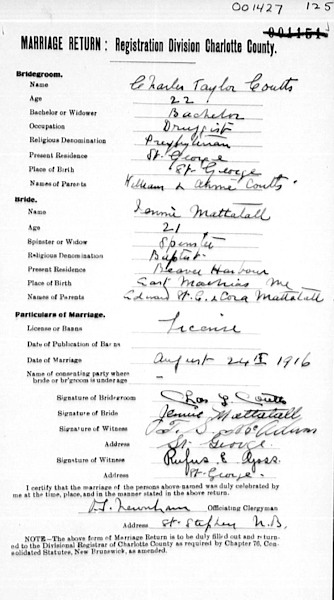 001427 125
001151
MARRIAGE RETURN: Registration Division Charlotte County.
Bridegroom.
Name Charles Taylor Coutts
Age 22
Bachelor or Widower Bachelor
Occupation Druggist
Religious Denomination Presbyterian
Present Residence St. George
Place of Birth St. George
Names of Parents William & Annie Coutts
Bride.
Name Jennie Mattatall
Age 21
Spinster or Widow Spinster
Religious Denomination Baptist
Present Residence Beaver Harbour
Place of Birth East Machias Me
Names of Parents Edward & Cora Mattatall
Particulars of Marriage.
License or Banns License
Date of Publication of Banns
Date of Marriage August 24th 1916
Name of consenting party where
bride or br'groom is under age -
Signature of Bridegroom Chas T Coutts
Signature of Bride Jennie Mattatall
Signature of Witness McAdam
Address St. George
Signature of Witness Rufus E
Address St. George
I certify that the marriage of the persons above named was duly celebrated by
me at the time, place, and in the manner stated in the above return.
Newnham Officiating Clergyman
Address St. Stephen N.B.
NOTE—The above form of Marriage Return is to be duly filled out and return-
ed to the Divisional Registrar of Charlotte County as required by Chapter 76, Con-
solidated Statutes, New Brunswick, as amended.